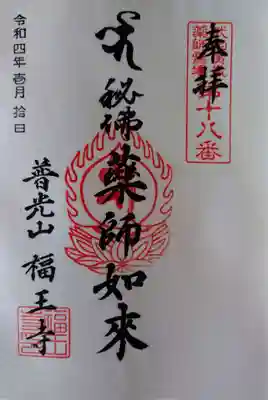 奉拝
第十八番
秘佛 藥師如來
普光山 福王寺
令和四年壱月拾日